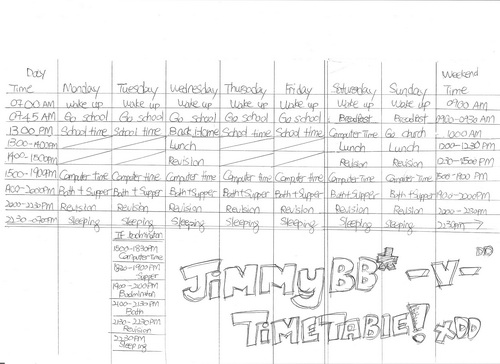 Day Weekend
Time Monday Tuesday Wednesday Thursday Friday Saturday Sunday Time
07:00 AM Wake up Wake up Wake up Wake up Wake up Wake up Wake up 09:00 AM
07:45 AM Go school Go school Go school Go school Go school Breakfast Breakfast
13:00 PM School time School time Back Home School time School time Computer Time Go church 10:00 AM
Lunch Lunch Lunch
Revision Revision Revision
1500-1900PM Computer time Computer time Computer time Computer time Computer time Computer time Computer time
Bath + Supper Bath + Supper Bath + Supper Bath + Supper Bath + Supper Bath + Supper Bath + Supper
Revision Revision Revision Revision Revision Revision Revision
Sleeping Sleeping Sleeping Sleeping Sleeping Sleeping Sleeping 2230PM
IF Badminton
1500-1830PM
Computer time
1830-1900PM
Supper
1900-2100PM
Badminton
2100-2130PM
Bath
2130-2230PM
Revision
2230PM
Sleeping
JiMMyBB* -v-
TiMETABLE! XDD